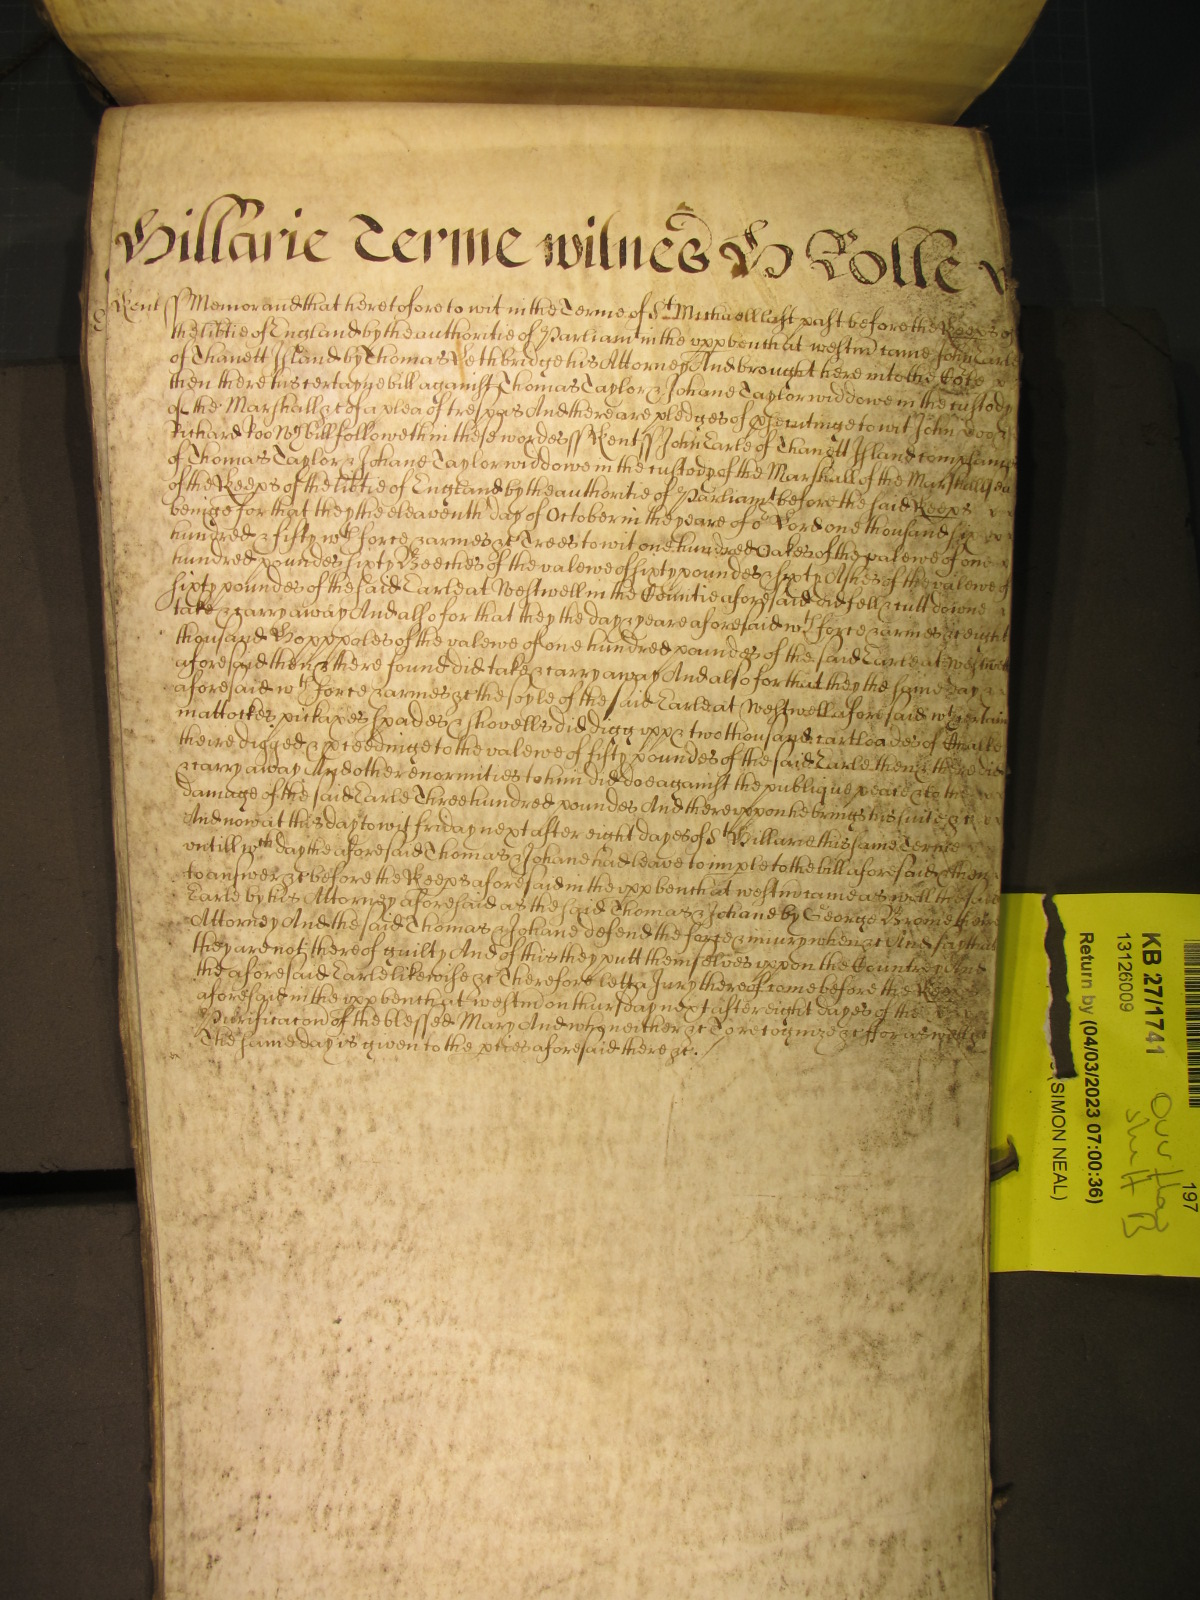 Hillarie Terme witnes H Rolle
Kent ss Memorand that heretofore to wit in the Terme of St Michaell last past before the Keeps of
the libtie of England by the authoritie of Parliam in the upp bench at westm came John Earle
of Thanett Island by Thomas Lethbridge his Attorney And brought here into the Cote
then there his certayne bill against Thomas Taylor & Johane Taylor widdowe in the custody
of the Marshall &c of a plea of trespas And there are pledges of psecutinge to wit John Doo &
Richard Roo Wch bill followeth in these wordes ss Kent ss John Earle of Thanett Island complaines
of Thomas Taylor & Johane Taylor widdowe in the custody of the Marshall of the Marshallsea
of the Keeps of the libtie of England by the authoritie of Parliamt before the said Keeps
beinge for that they the eleaventh day of October in the yeare of or Lord one thousand six
hundred & fifty wth force & armes &c Trees to wit one hundred Oakes of the valewe of one
hundred poundes sixty Beeches of the valewe of sixty poundes & sixty Ashes of the valewe of
sixty poundes of the said Earle at Westwell in the Countie aforesaid did fell & cutt downe
take & carry away And also for that they the day & yeare aforesaid wth force & armes &c eight
thousand Hopp poles of the valewe of one hundred poundes of the said Earle at Westwell
aforesaid then & there found did take & carry away And also for that they the same day &
aforesaid wth force & armes &c the soyle of the said Earle at Westwell aforesaid wth certain
mattockes pickaxes spades & shovells did digg upp & two thousand cartloades of
theire digged & pceedinge to the valewe of fifty poundes of the said Earle then & there did
& carry away And other enormities to him did doe against the publique peace & to the
damage of the said Earle Three hundred poundes And thereuppon he brings his suite &c
And now at this day to wit friday next after eight dayes of St Hillarie this same Terme
untill wch day the aforesaid Thomas & Johane had leave to imple to the bill aforesaid & then
to answer &c before the Keeps aforesaid in the upp bench at westm came as well the said
Earle by his Attorney aforesaid as the said Thomas & Johane by George Brome theire
Attorney And the said Thomas & Johane defend the force & iniury when &c And say that
they are not thereof guilty And of this they putt themselves uppon the Country And
the aforesaid Earle likewise &c Therefore lett a Jury thereof come before the Keeps
aforesaid in the upp bench at westm on thursday next after eight dayes of the
Purificacon of the blessed Mary And who neither &c To recognize &c ffor aswell &c
The same day is given to the pties aforesaid there &c.
KB 27/1741
13126009
Return by (04/03/2023 07:00:36)
(SIMON NEAL)
197